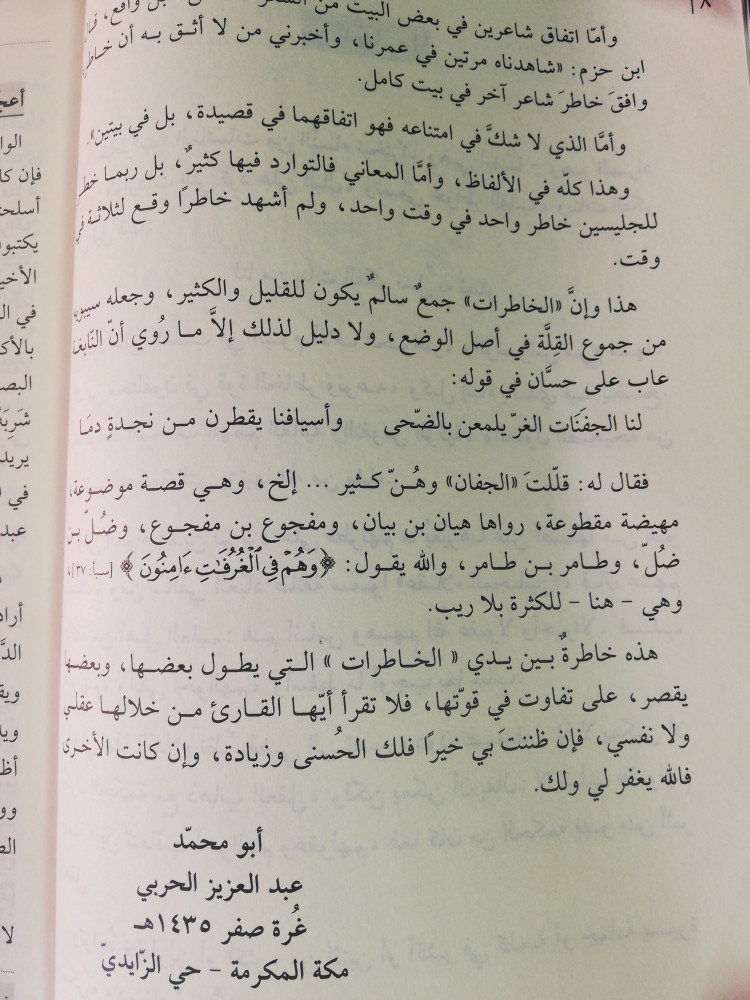 ٨
وأمّا اتفاق شاعرين في بعض البيت من الشعر بل واقع، قال
ابن حزم: «شاهدناه مرتين في عمرنا، وأخبرني من لا أثق به أن خاطر
وافقَ خاطرَ شاعر آخر في بيت كامل.
وأمَّا الذي لا شكَّ في امتناعه فهو اتفاقهما في قصيدة، بل في بيتين».
وهذا كلّه في الألفاظ، وأمَّا المعاني فالتوارد فيها كثيرٌ، بل ربمـا خطر
للجليسين خاطر واحد في وقت واحد، ولم أشهد خاطرًا وقـع لثلاثـة في
وقت.
هذا وإنَّ «الخاطرات» جمعٌ سالمٌ يكون للقليل والكثير، وجعله سيبويه
من جموع القِلَّة في أصل الوضع، ولا دليل لذلك إلاَّ مـا رُوي أنّ النّابغة
عاب على حسَّان في قوله:
لنا الجفنَات الغرّ يلمعن بالضّحى وأسيافنا يقطرن مـن نجـدةٍ دمَا
فقال له: قلّلتَ «الجفان» وهُـنّ كـثير ... إلخ، وهـي قصـة موضـوعة،
مهيضة مقطوعة، رواها هيان بن بيان، ومفجوع بن مفجـوع، وضُـلّ بـن
ضُلّ، وطـامر بـن طـامر، والله يقـول: ﴿وَهُمْ فِي ٱلْغُرُفَٰتِ ءَامِنُونَ﴾ [سبأ: ٣٧]،
وهي - هنا - للكثرة بلا ريب.
هذه خاطرةٌ بـين يـدي « الخـاطرات » الـتي يطـول بعضـها، وبعضـها
يقصر، على تفاوت في قوّتها، فلا تقرأ أيّهـا القـارئ مـن خلالهـا عقلـي
ولا نفسي، فإن ظننتَ بي خيرًا فلك الحُسنى وزيادة، وإن كانت الأخرى
فالله يغفر لي ولك.
أبو محمّد
عبد العزيز الحربي
غُرة صفر ١٤٣٥هـ
مكة المكرمة - حي الزّايديّ
أعج
الوا
فإن كا
أسلحت
يكتبو
الأخير
في ال
بالأك
البص
شَرِبَة
يريد
في
عبد
أراد
الدَّ
ويق
ويا
أظ
وو
الص
لا